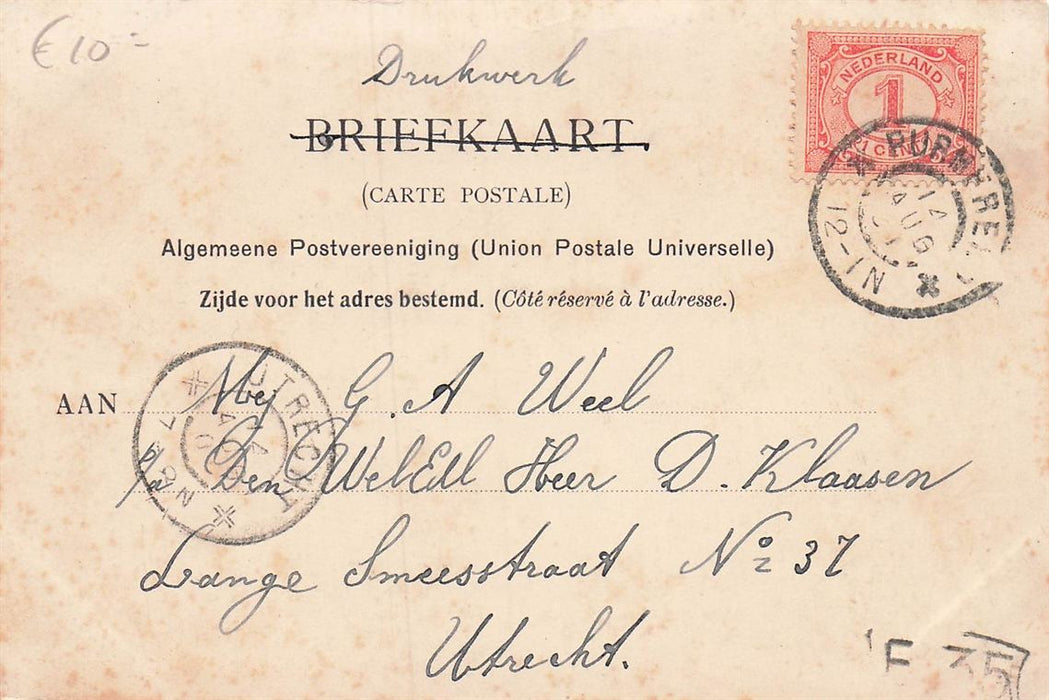 €10:-
Drukwerk
NEDERLAND
1
1 CENT
BRIEFKAART.
(CARTE POSTALE)
PURMEREND
14 AUG
12-1N
Algemeene Postvereeniging (Union Postale Universelle)
Zijde voor het adres bestemd. (Côté réservé à l'adresse.)
UTRECHT
AAN Mej G. A Weel
p/a Den WelEdl Heer D. Klaasen
Lange Smeesstraat No 37
Utrecht.
E 35